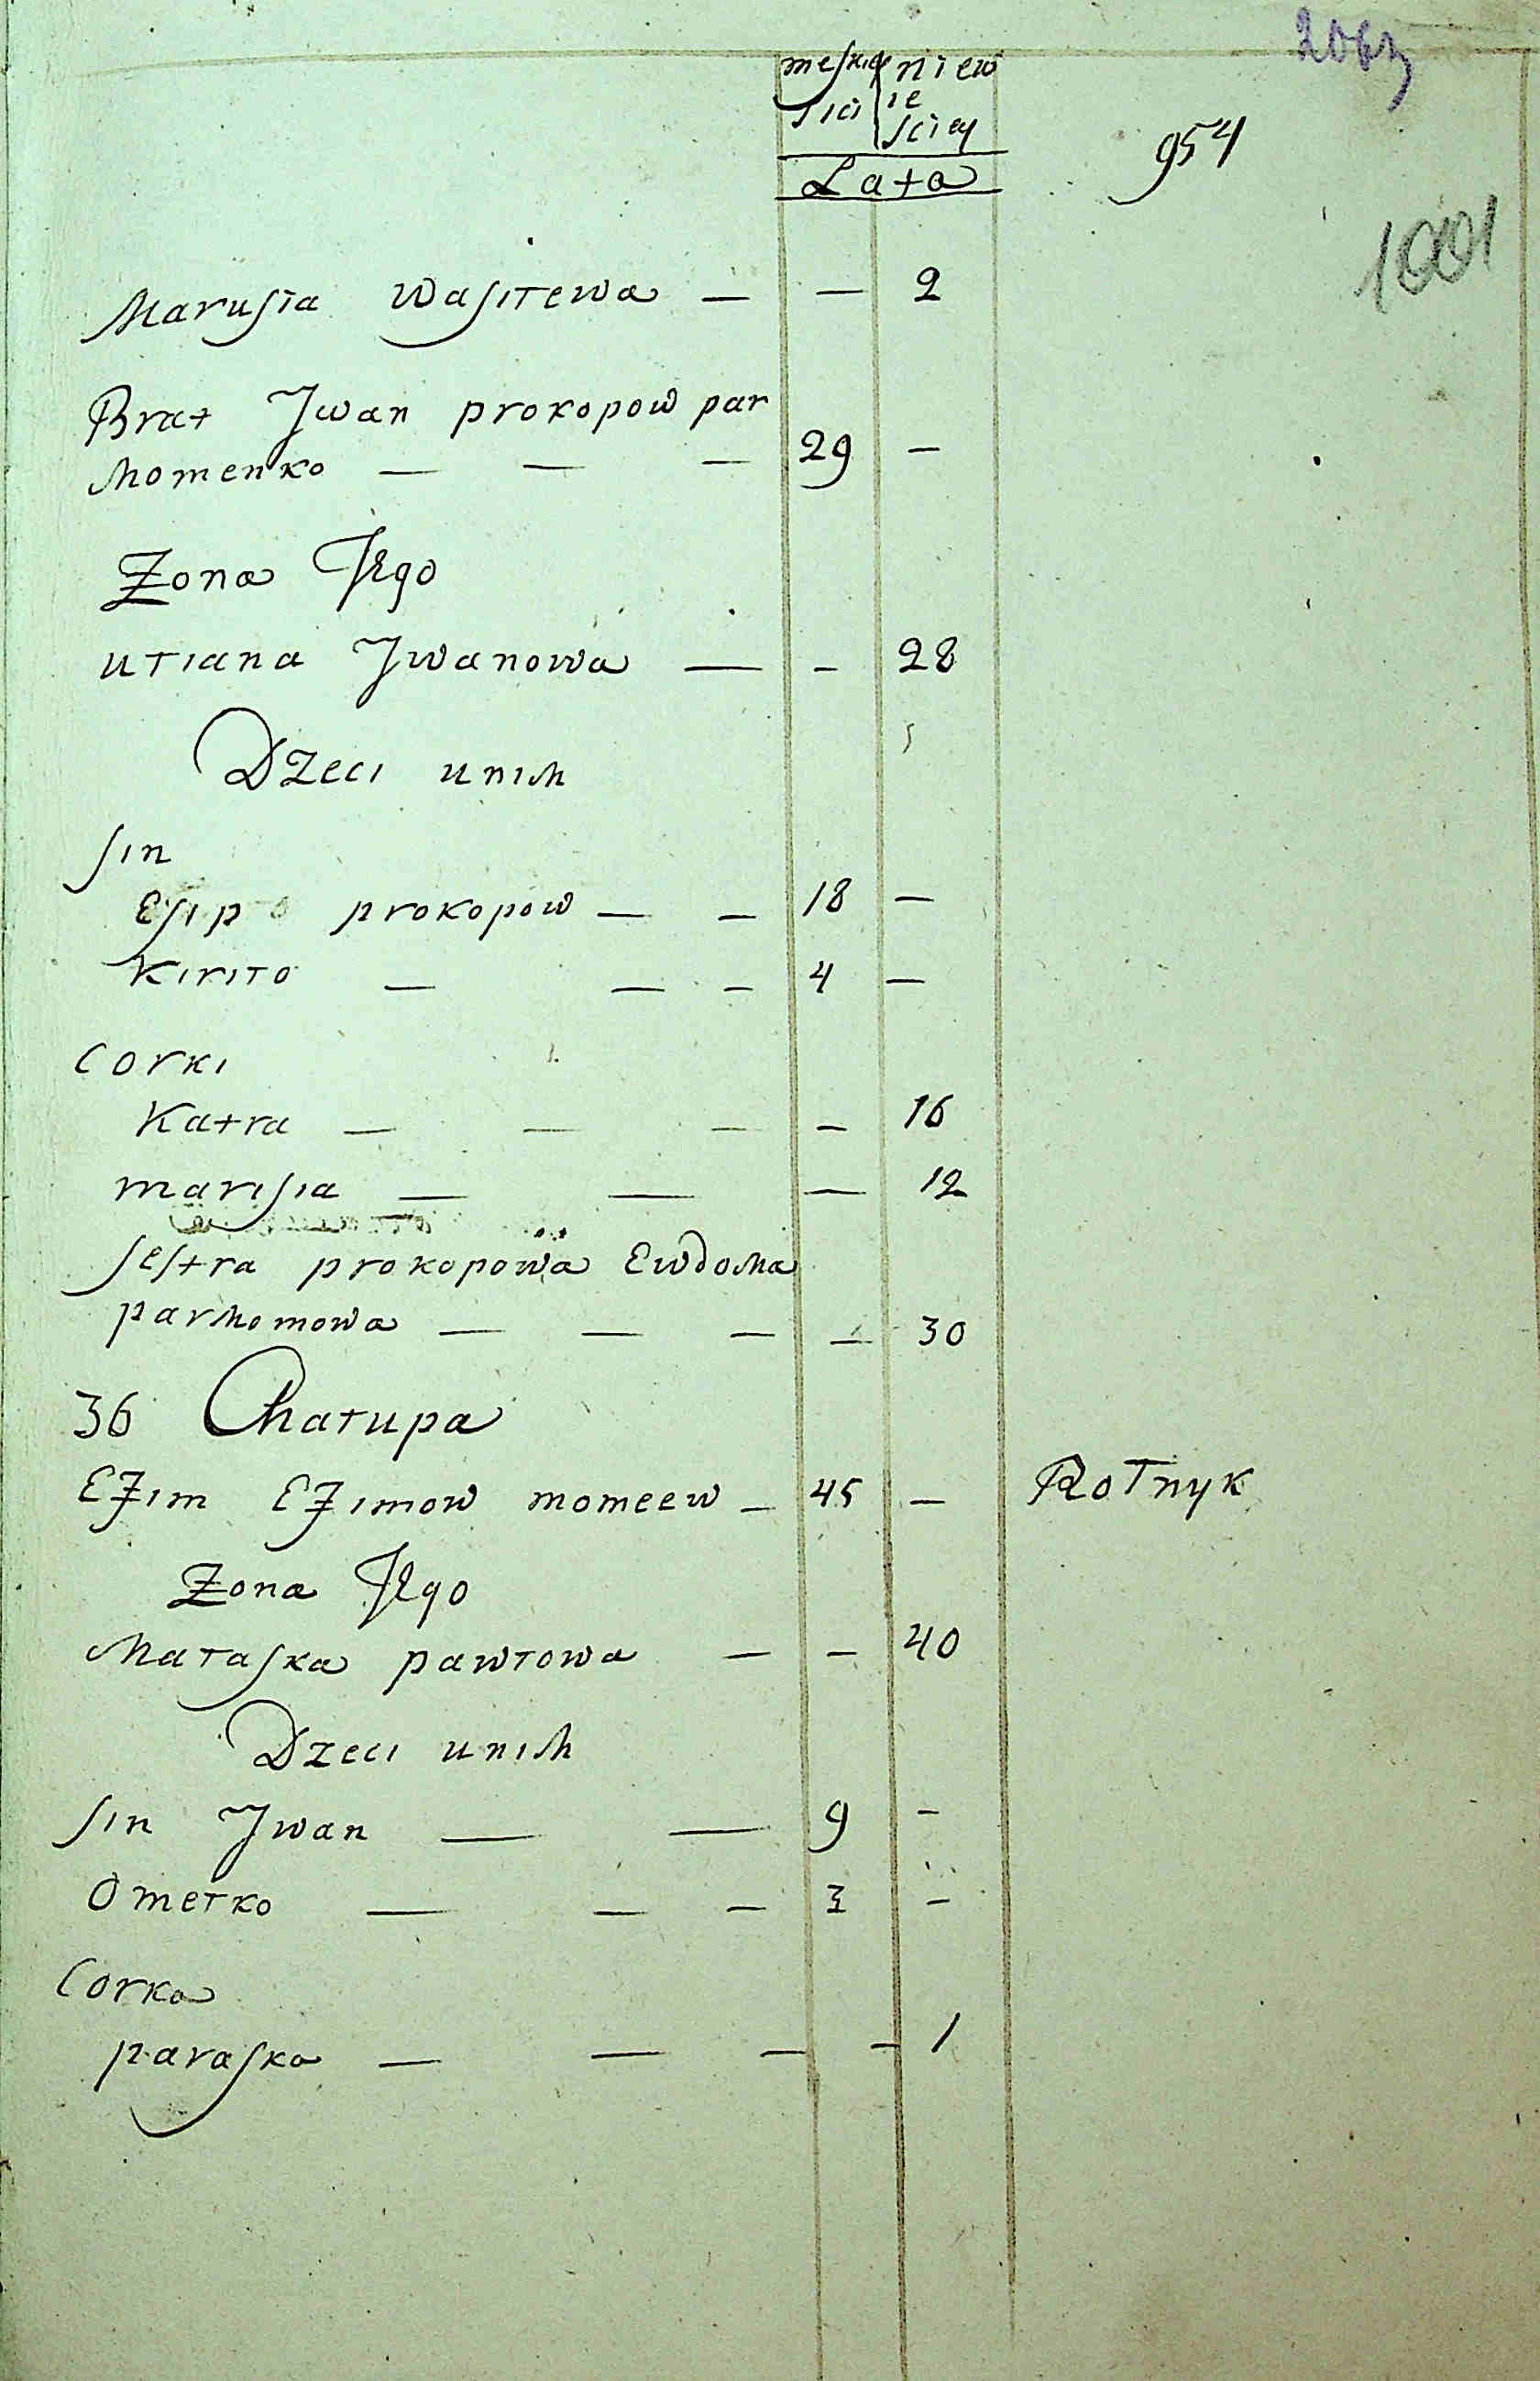 2063
954
1001
meskiej niew
sici ie
sciey
Lata
Marusia Wasilewa — — 2
Brat Jwan prokopow par
homenko — — — 29 —
Żona Jego
uliana Jwanowa — — 28
Dzeci unih
sin
Esip prokopow — — 18 —
Kirilo — — — 4 —
Corki
Katra — — — — 16
marisia — — — 12
sestra prokopowa Ewdoha
parhomowa — — — — 30
36 Chalupa
Eƶim Eƶimow homeew — 45 — Rolnyk
Żona Jego
Halaska pawlowa — — 40
Dzeci unih
sin Jwan — — 9 —
Omelko — — — 3 —
Corka
paraska — — — — 1